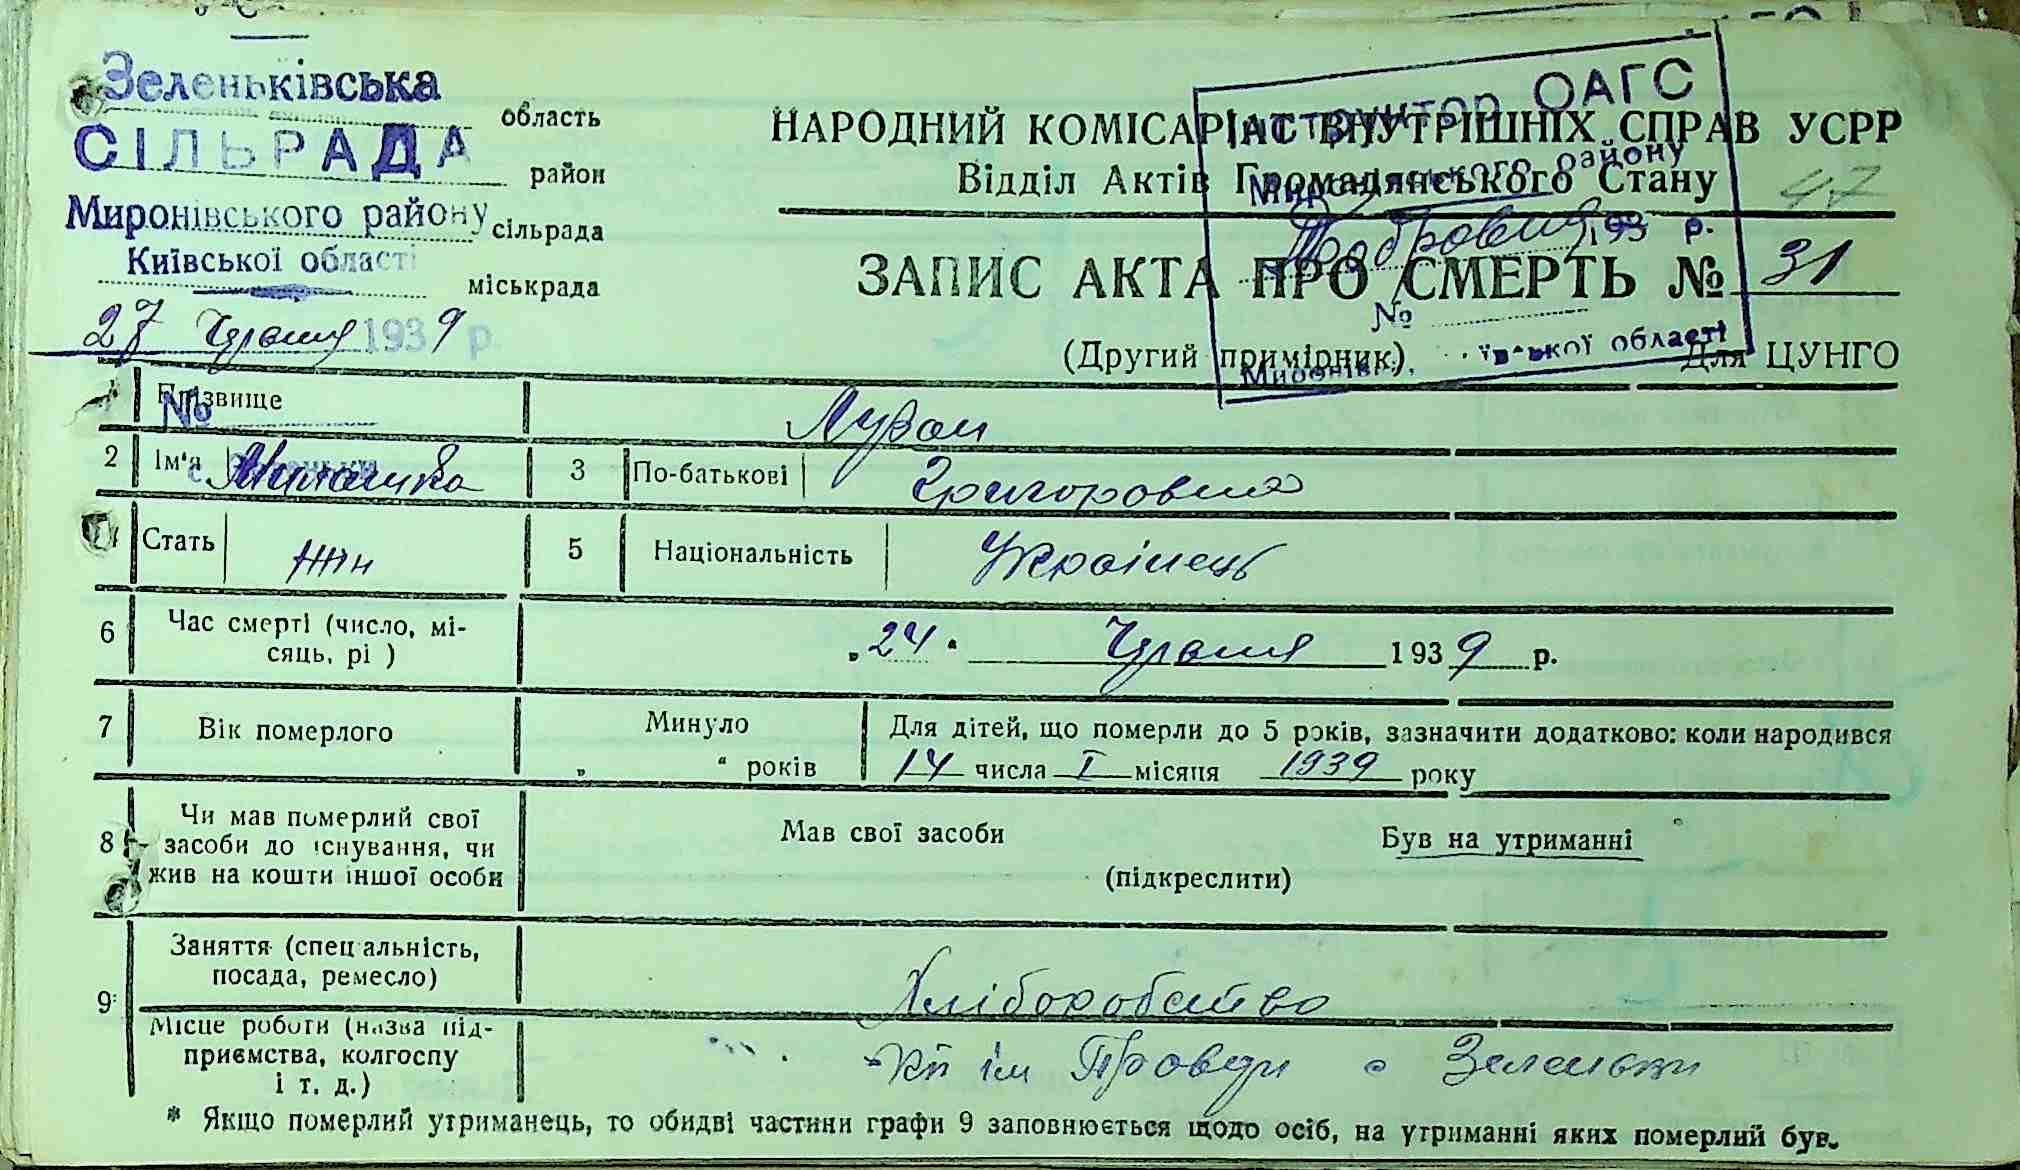 Зеленьківська область
СІЛЬРАДА район
Миронівського району сільрада
Київської області міськрада
27 Травня 1939 р.
№
с. Зеленьки
НАРОДНИЙ КОМІСАРІАТ ВНУТРІШНІХ СПРАВ УСРР
Відділ Актів Громадянського Стану
47
Інструктор ОАГС
Миронівського району
193 р.
№
Миронівка, Київської області
ЗАПИС АКТА ПРО СМЕРТЬ № 31
(Другий примірник) Для ЦУНГО
Прізвище
2 Ім'я 3 По-батькові Григоровна
Стать жін 5 Національність Українець
6 Час смерті (число, мі-
сяць, рі ) „24" Травня 1939 р.
7 Вік померлого Минуло „ " років
Для дітей, що померли до 5 років, зазначити додатково: коли народився
14 числа I місяця 1939 року
8 Чи мав померлий свої
засоби до існування, чи
жив на кошти іншої особи
Мав свої засоби Був на утриманні
(підкреслити)
9 Заняття (спеціальність,
посада, ремесло) Хліборобство
Місце роботи (назва під-
приємства, колгоспу
і т. д.) ім Правди с Зеленьки
* Якщо померлий утриманець, то обидві частини графи 9 заповнюється щодо осіб, на утриманні яких померлий був.